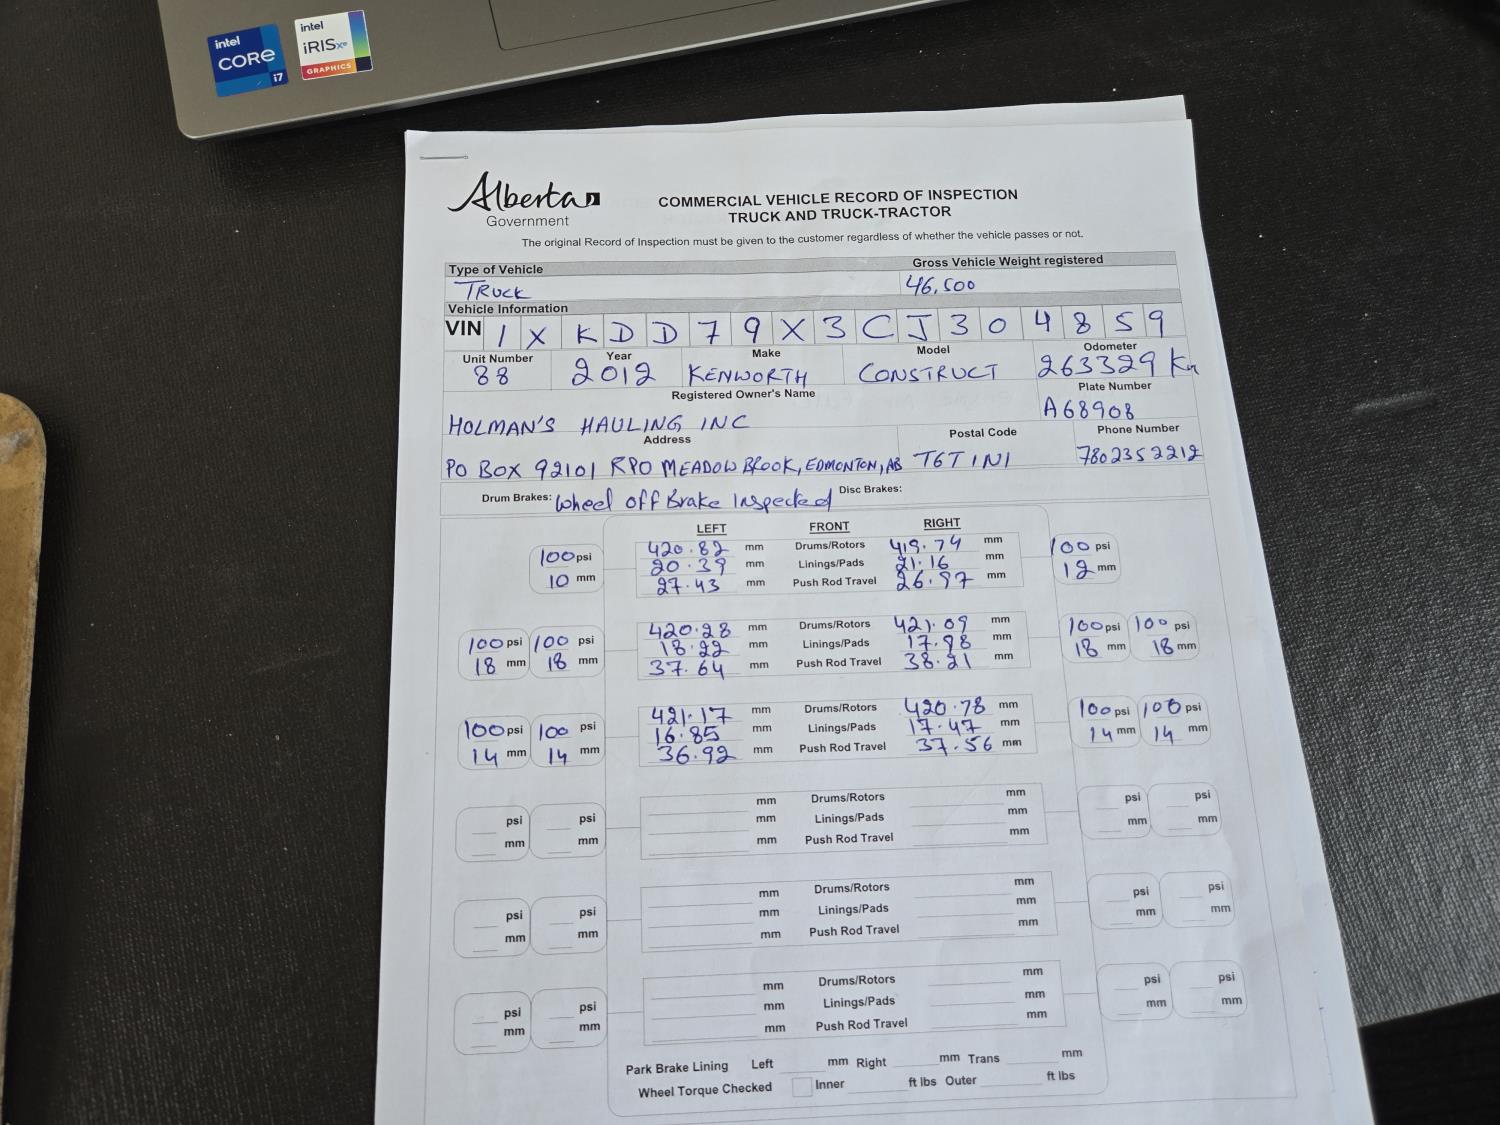 intel
CORE
i7
intel
iRISxe
GRAPHICS
Alberta
Government
COMMERCIAL VEHICLE RECORD OF INSPECTION
TRUCK AND TRUCK-TRACTOR
The original Record of Inspection must be given to the customer regardless of whether the vehicle passes or not.
Type of Vehicle Gross Vehicle Weight registered
TRUCK 46,500
Vehicle Information
VIN 1 X K D D 7 9 X 3 C J 3 0 4 8 5 9
Unit Number Year Make Model Odometer
88 2012 KENWORTH CONSTRUCT 263329 Km
Registered Owner's Name Plate Number
HOLMAN'S HAULING INC A68908
Address Postal Code Phone Number
PO BOX 92101 RPO MEADOWBROOK, EDMONTON, AB T6T 1N1 7802352212
Drum Brakes: Wheel off Brake Inspected Disc Brakes:
LEFT FRONT RIGHT
100 psi 420.82 mm Drums/Rotors 419.74 mm 100 psi
20.39 mm Linings/Pads 21.16 mm
10 mm 27.43 mm Push Rod Travel 26.97 mm 12 mm
100 psi 100 psi 420.28 mm Drums/Rotors 421.09 mm 100 psi 100 psi
18.22 mm Linings/Pads 17.98 mm
18 mm 18 mm 37.64 mm Push Rod Travel 38.21 mm 18 mm 18 mm
100 psi 100 psi 421.17 mm Drums/Rotors 420.78 mm 100 psi 100 psi
16.85 mm Linings/Pads 17.47 mm
14 mm 14 mm 36.92 mm Push Rod Travel 37.56 mm 14 mm 14 mm
psi psi mm Drums/Rotors mm psi psi
mm Linings/Pads mm
mm mm mm Push Rod Travel mm mm mm
psi psi mm Drums/Rotors mm psi psi
mm Linings/Pads mm
mm mm mm Push Rod Travel mm mm mm
psi psi mm Drums/Rotors mm psi psi
mm Linings/Pads mm
mm mm mm Push Rod Travel mm mm mm
Park Brake Lining Left mm Right mm Trans mm
Wheel Torque Checked Inner ft lbs Outer ft lbs